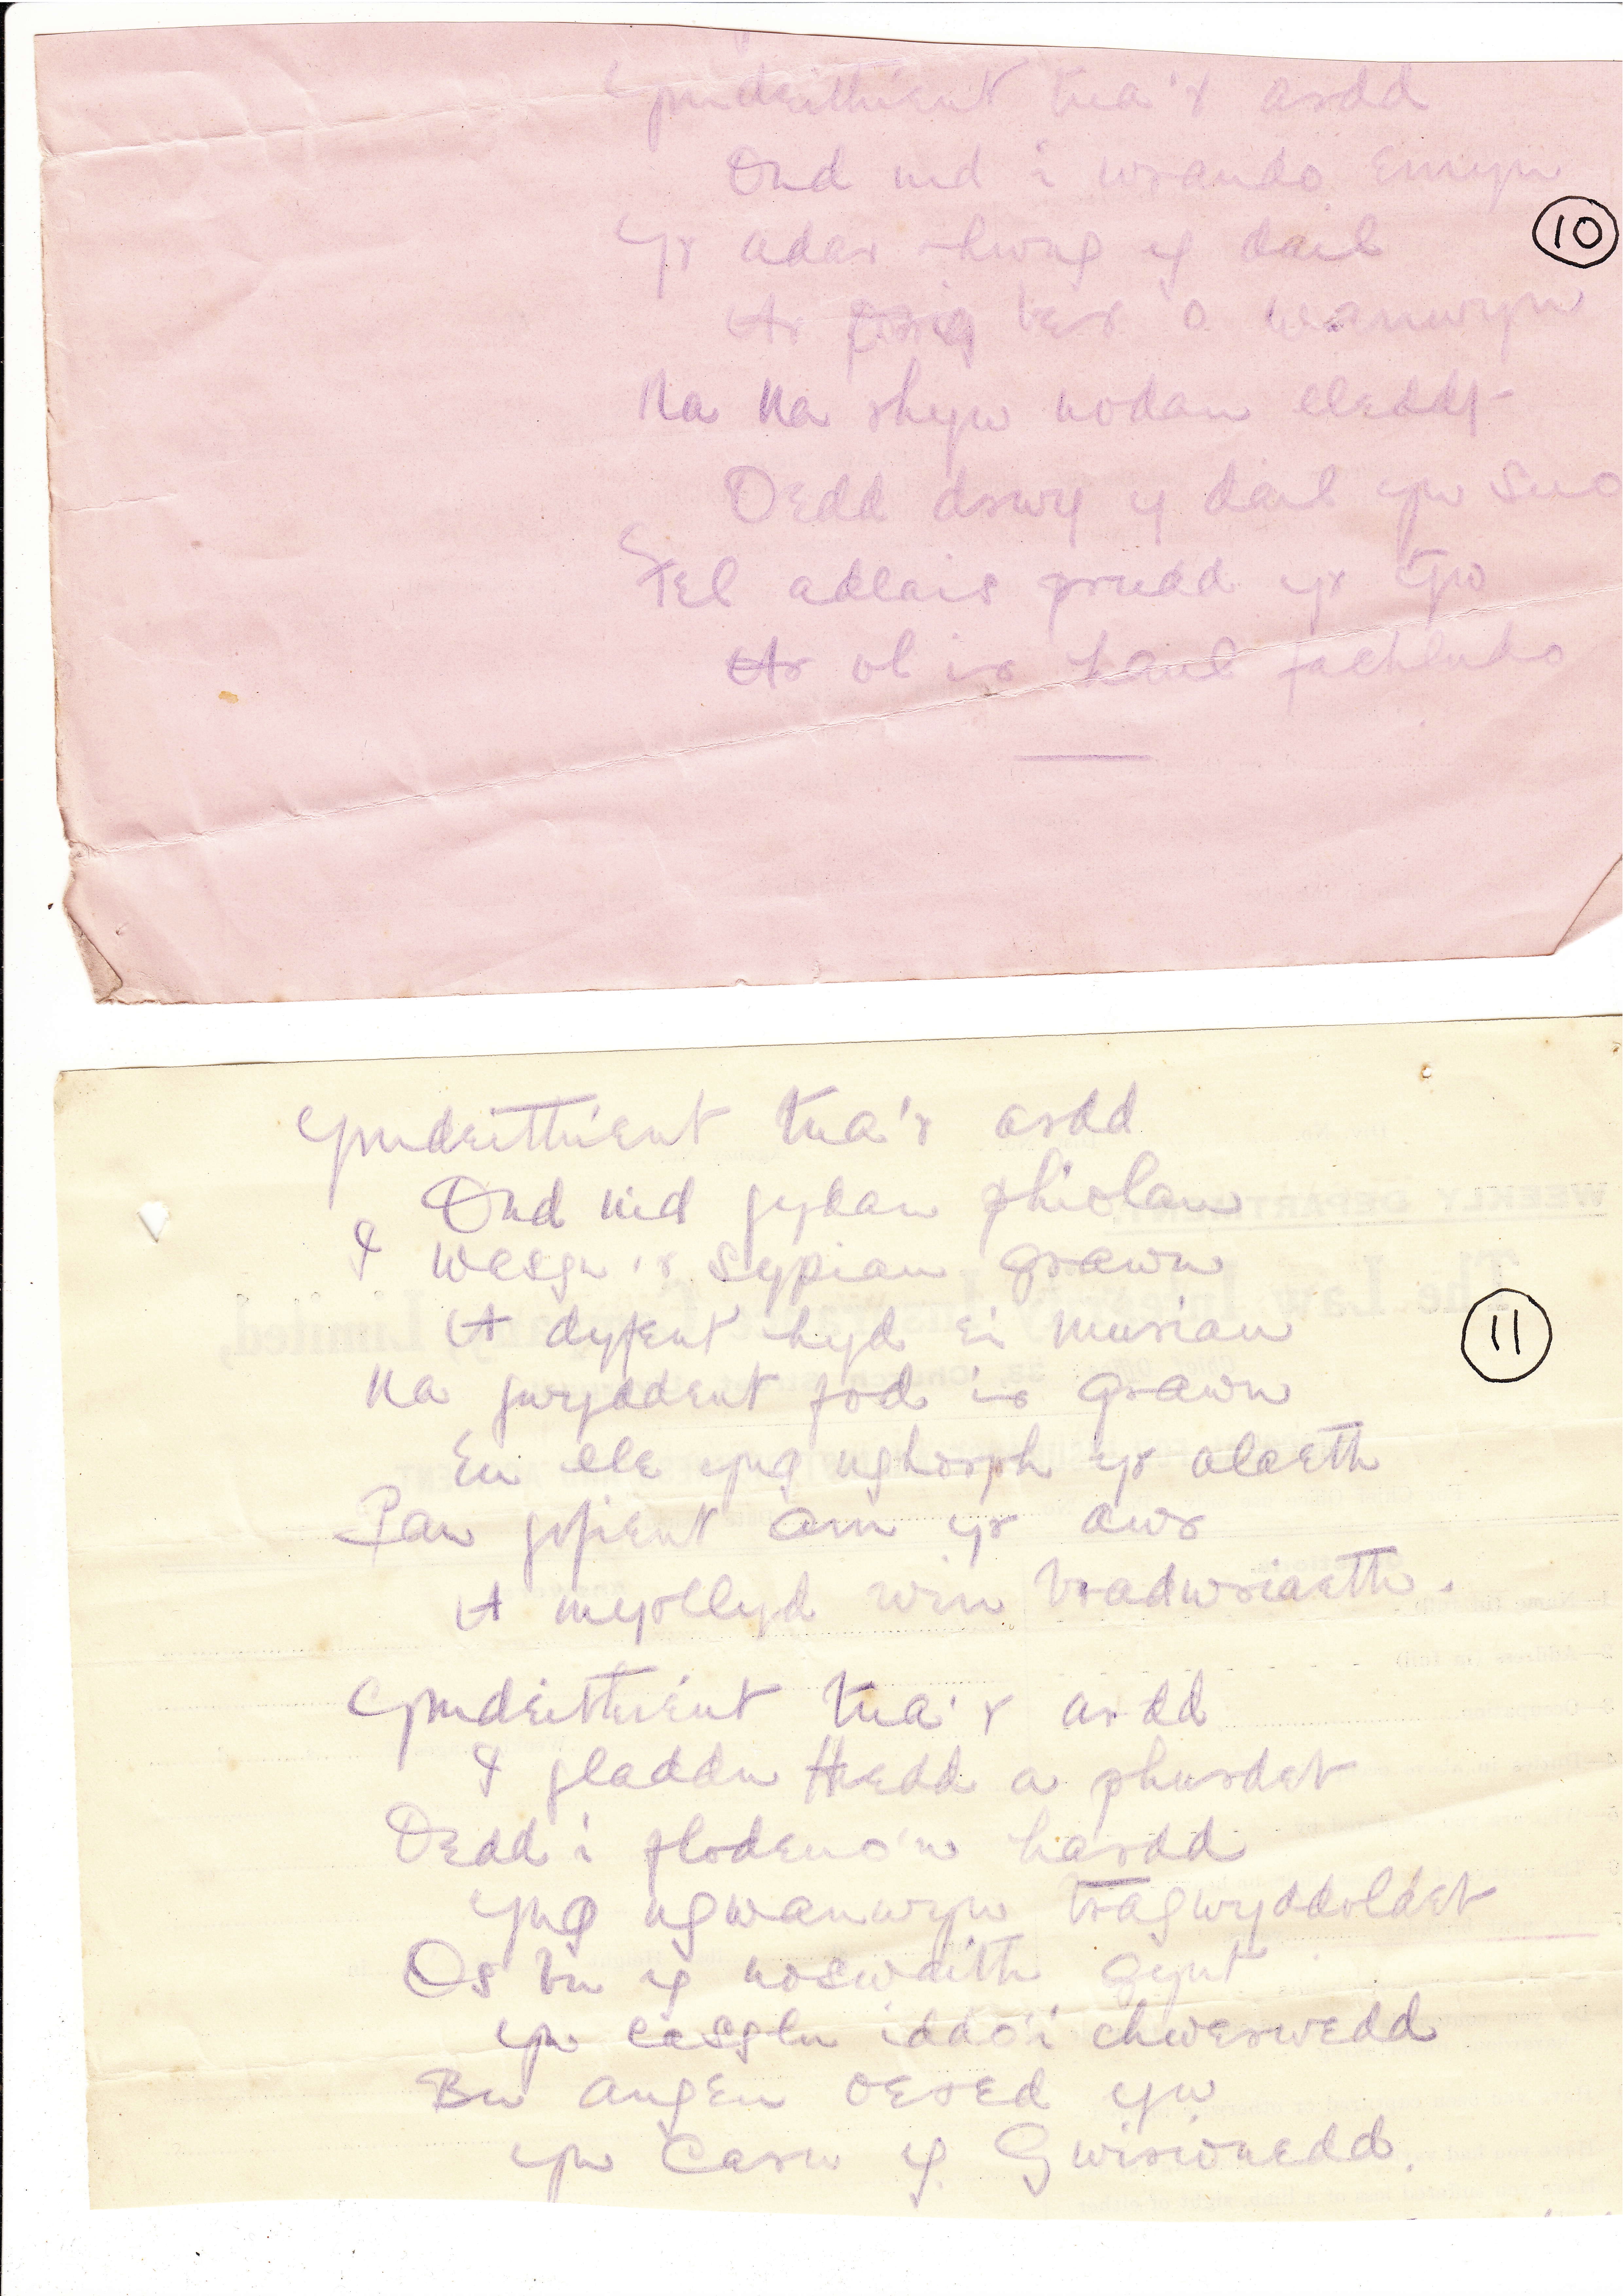 Ymdeithient tua'r ardd
Ond nid i wrando emyn
Yr adar rhwng y dail
Ar frig ber o wanwyn
Na Na rhyw nodau lleddf
Oedd drwy y dail yn suo
Fel adlais prudd yr Yw
Ar ol ir haul fachludo
10
Ymdeithient tua'r ardd
Ond nid gydau phiolau
I wasgu'r sypiau grawn
A dyfent hyd ei muriau
Na gwyddent fod ir grawn
Eu lle yng nghorph yr alaeth
Pan gofient am yr awr
A myrllyd win bradwriaeth.
11
Ymdeithient tua'r ardd
I gladdu Hedd a phurdeb
Oedd i flodeuo'n hardd
Yng ngwanwyn tragwyddoldeb
Os bu y noswaith gynt
yn casglu iddo'i chwerwedd
Bu angeu oered yw
yn Caru y Gwirionedd.